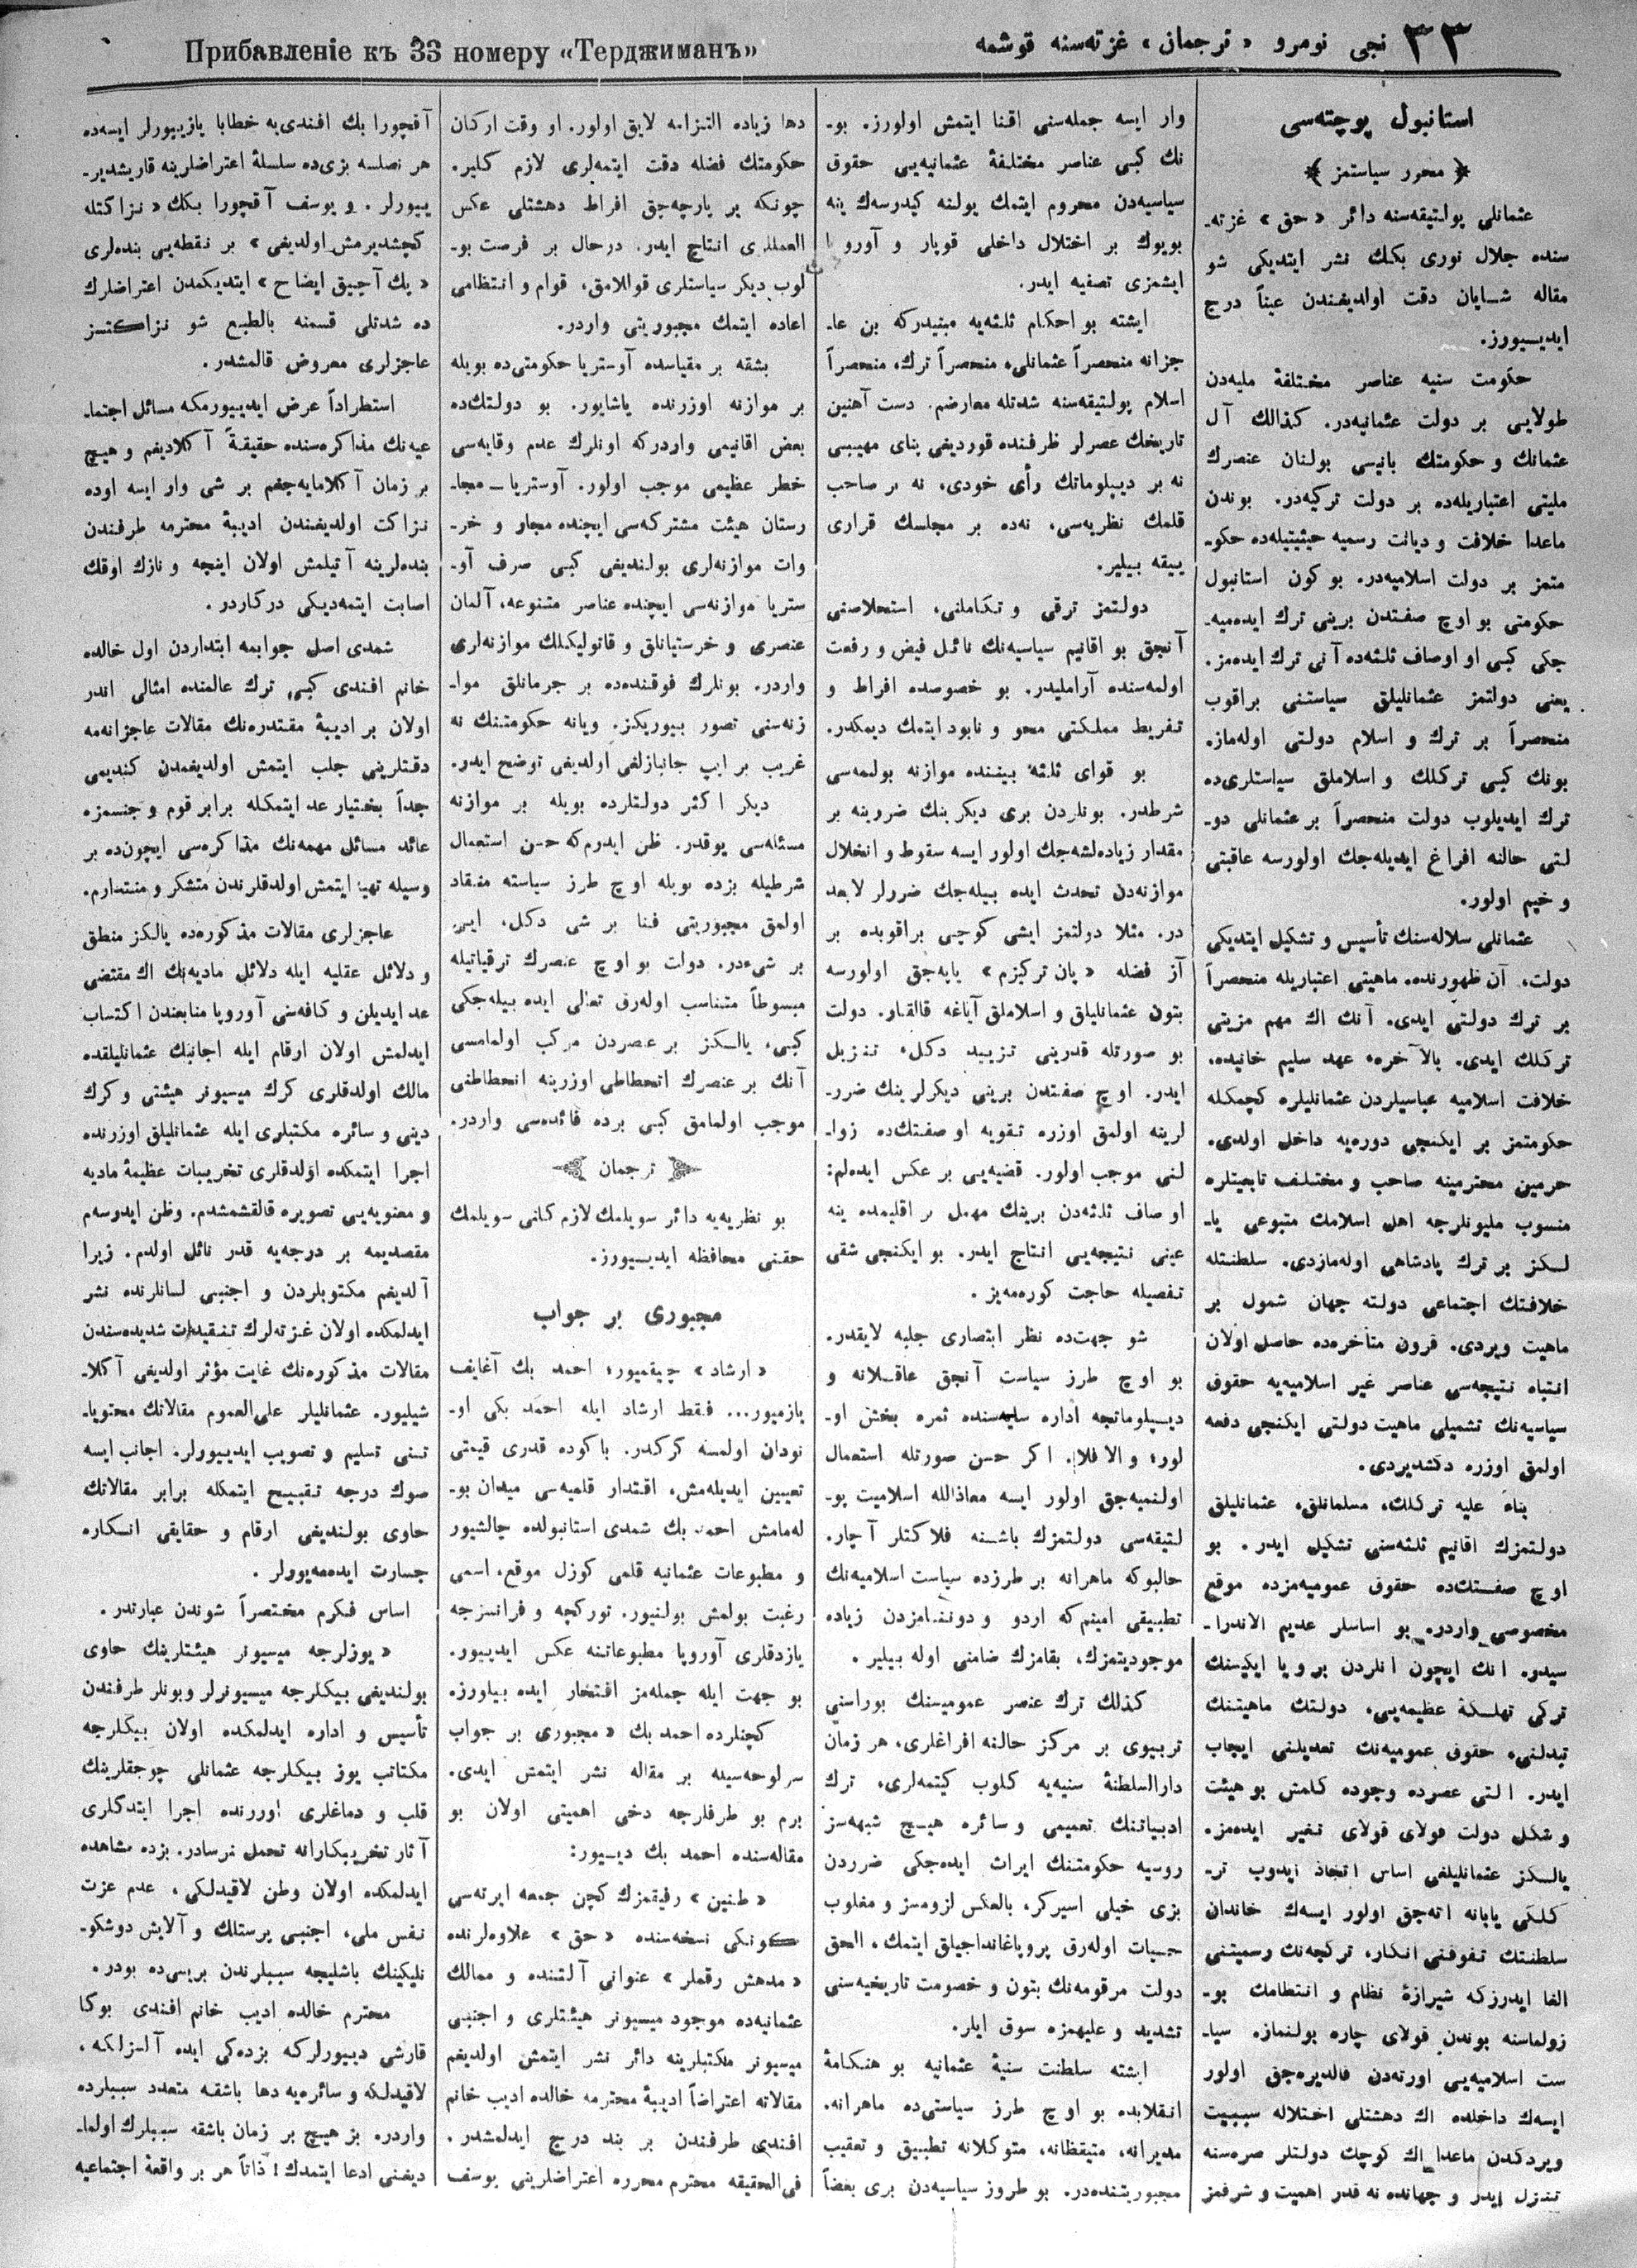 ۳۳ نجی نومرو «ترجمان» غزته‌سنه قوشمه
Прибавленіе къ 33 номеру «Терджиманъ»
استانبول پوچته‌سی
﴿ محور سیاستمز ﴾
عثمانلی پولتیقه‌سنه دائر «حق» غزته‌ـ
سنده جلال نوری بکك نشر ایتدیکی شو
مقاله شــایان دقت اولدیغـندن عیناً درج
ایدیـیورز.
حکومت سنیه عناصر مختلفهٔ ملیه‌دن
طولایی بر دولت عثمانیه‌در. کذالك آل
عثمانك و حکومتك بانیسی بولنان عنصرك
ملیتی اعتباریله‌ده بر دولت ترکیه‌در. بوندن
ماعدا خلافت و دیانت رسمیه حیثیتیله‌ده حکوـ
متمز بر دولت اسلامیه‌در. بوکون استانبول
حکومتی بو اوچ صفـتدن برینی ترك ایده‌میه‌ـ
جکی کبی او اوصاف ثلثه‌ده آنی ترك ایده‌مز.
یعنی دولتمز عثمانلیلق سیاستـنی براقوب
منحصراً بر ترك و اسلام دولتی اوله‌ماز.
بونك کبی ترکلك و اسلاملق سیاستلری‌ده
ترك ایدیلوب دولت منحصراً بر عثمانلی دوـ
لتی حالنه افراغ ایدیله‌جك اولورسه عاقبتی
و خیم اولور.
عثمانلی سلاله‌سنك تأسیس و تشکیل ایتدیکی
دولت، آن ظهورنده، ماهیتی اعتباریله منحصراً
بر ترك دولـتی ایدی. آنك اك مهم مزیتی
ترکلك ایدی. بالآخره، عهد سلیم خانیده،
خلافت اسلامیه عباسیلردن عثمانلیلره کچمکله
حکومتمز بر ایکنجی دوره‌یه داخل اولدی.
حرمین محترمینه صاحب و مختـلـف تابعیتلره
منسوب ملیونلرجه اهل اسلامك متبوعی یاـ
لـکز بر ترك پادشاهی اوله‌مازدی. سلطنـتله
خلافتك اجتماعی دولته جهان شمول بر
ماهیت ویردی. قرون متأخره‌ده حاصل اولان
انتباه نتیجه‌سی عناصر غیر اسلامیه‌یه حقوق
سیاسیه‌نك تشمیلی ماهیت دولتی ایکنجی دفعه
اولمق اوزره دکشدیردی.
بناءً علیه ترکلك، مسلمانلق، عثمانلیلق
دولـتمزك اقانیم ثلـثه‌سنی تشکیل ایدر. بو
اوچ صفـتـك‌ده حقوق عمومیه‌مزده موقع
مخصوصی واردر. بو اساسلر عدیم الاندراـ
سیدر. انك ایچون انلردن بر ویا ایکیسنك
ترکی تهـلـکهٔ عظیمه‌یی، دولـتـك ماهیتـنك
تبدلـنی، حقوق عمومیه‌نك تعدیلـنی ایجاب
ایدر. الـتی عصرده وجوده کـلمش بو هیئت
و شکل دولت قولای قولای تـغیر ایده‌مز.
یالـکز عثمانلیلغی اساس اتخاذ ایدوب ترـ
کـلـکی یابانه اته‌جق اولور ایسه‌ك خاندان
سلطنـتك تـفوقـنی انـکار، ترکجه‌نك رسمیتـنی
الغا ایدرزکه شیرازهٔ نظام و انـتظامك بوـ
زولماسنه بوندن قولای چاره بولـنماز. سیاـ
ست اسلامیه‌یی اورته‌دن قالدیره‌جق اولور
ایسه‌ك داخلده اك دهشتلی اختلاله سببیت
ویردکدن ماعدا اك کوچك دولـتلر صره‌سنه
تـنزل ایدر و جهانده نه قدر اهمیت و شرفمز
وار ایسه جمله‌سنی افـنا ایتمش اولورز. بوـ
نك کبی عناصر مختـلـفهٔ عثمانیه‌یی حقوق
سیاسیه‌دن محروم ایتمك یولـنه کیدرسه‌ك ینه
بویوك بر اختلال داخلی قوپار و آوروپا
ایشمزی تصفیه ایدر.
ایشته بو احکام ثلـثه‌یه مبـنیدرکه بن عاـ
جزانه منحصراً عثمانلی، منحصراً ترك، منحصراً
اسلام پولـتیقه‌سنه شدتله معارضم. دست آهنین
تاریخك عصرلر ظرفـنده قوردیغی بنای مهیـبی
نه بر دیپلوماتك رأی خودی، نه بر صاحب
قلمك نظریه‌سی، نه‌ده بر مجلسك قراری
ییقه بیلیر.
دولـتمز ترقی و تـکاملـنی، استحلاصنی
آنجق بو اقانیم سیاسیه‌نك نائل فیض و رفعت
اولمه‌سنده آراملیدر. بو خصوصده افراط و
تـفریط مملـکـتی محو و نابود ایتمك دیمکدر.
بو قوای ثلـثه بیـنـنده موازنه بولـنمه‌سی
شرطدر. بونلردن بری دیکرینك ضررینه بر
مقدار زیاده‌لشه‌جك اولور ایسه سقوط و انحلال
موازنه‌دن تحدث ایده بیله‌جك ضررلر لابعد
در. مثلا دولتمز ایشی کوجی براقوبده بر
آز فضله «پان ترکیزم» یاپه‌جق اولورسه
بتون عثمانلیلق و اسلاملق آیاغه قالقار. دولت
بو صورتله قدرینی تزیید دکل، تـنزیل
ایدر. اوچ صفـتدن برینی دیکرلرینك ضررـ
لرینه اولمق اوزره تـقویه او صفـتك‌ده زواـ
لـنی موجب اولور. قضیه‌یی بر عکس ایده‌لم:
اوصاف ثلـثه‌دن برینك مهمل بر اقلیمده ینه
عینی نـتیجه‌یی انـتاج ایدر. بو ایکـنجی شقی
تـفصیله حاجت کوره‌میز.
شو جهت‌ده نظر ابتصاری جلبه لایقدر.
بو اوچ طرز سیاست آنجق عاقـلانه و
دیـپلوماتجه اداره سایه‌سنده ثمره بخش اوـ
لور؛ والا فلا. اکر حسن صورتله استعمال
اولـنمیه‌جق اولور ایسه معاذالله اسلامیت پوـ
لـتیقه‌سی دولـتمزك باشـنه فلاکـتلر آچار.
حالبوکه ماهرانه بر طرزده سیاست اسلامیه‌نك
تطبیقی امینم‌که اردو و دوننـامزدن زیاده
موجودیتمزك، بقامزك ضامنی اوله بیلیر.
کذلك ترك عنصر عمومیسنك بوراسنی
تربیوی بر مرکز حالـنه افراغلری، هر زمان
دارالسلطنهٔ سنیه‌یه کلوب کیتمه‌لری، ترك
ادبیاتـنك تعمیمی و سائره هیـچ شبهه‌سز
روسیه حکومتـنك ایراث ایده‌جکی ضرردن
بزی خیلی اسیرکر، بالعکس لزومسز و مغلوب
حسیات اوله‌رق پروپاغانداجیلق ایتمك، الحق
دولت مرقومه‌نك بتون و خصومت تاریخیه‌سنی
تشدید و علیهمزه سوق ایلر.
ایشته سلطنت سنیهٔ عثمانیه بو هنـکامهٔ
انـقلابده بو اوچ طرز سیاستی‌ده ماهرانه،
مدیرانه، متیـقظانه، متوکلانه تطبیـق و تعقیب
مجبوریتـنده‌در. بو طروز سیاسیه‌دن بری بعضاً
دها زیاده الـتزامه لایق اولور. او وقت ارکان
حکومتك فضله دقت ایتمه‌لری لازم کلیر.
چونکه بر پارچه‌جق افراط دهشتلی عکس
العمللری انـتاج ایدر. درحال بر فرصت بوـ
لوب دیکر سیاستلری قوللامق، قوام و انـتظامی
اعاده ایتمك مجبوریتی واردر.
بشقه بر مقیاسده آوستریا حکومتی‌ده بویله
بر موازنه اوزرنده یاشایور. بو دولـتك‌ده
بعض اقانیمی واردرکه اونلرك عدم وقایه‌سی
خطر عظیمی موجب اولور. آوستریا ــ مجاـ
رستان هیئت مشترکه‌سی ایچنده مجار و خرـ
وات موازنه‌لری بولـندیغی کبی صرف آوـ
ستریا موازنه‌سی ایچنده عناصر متـنوعه، آلمان
عنصری و خرستیانلق و قاتولیکلك موازنه‌لری
واردر. بونلرك فوقـنده‌ده بر جرمانلق مواـ
زنه‌سنی تصور بیوریکز. ویانه حکومتـنك نه
غریب بر ایپ جانبازلغی اولدیغی توضح ایدر.
دیکر اکثر دولـتلرده بویله بر موازنه
مسئله‌سی یوقدر. ظن ایدرم‌که حسن استعمال
شرطیله بزده بویله اوچ طرز سیاسته منقاد
اولمق مجبوریتی فـنا بر شی دکل، ایی
بر شی‌ءدر. دولت بو اوچ عنصرك ترقیاتیله
مبسوطاً متـناسب اوله‌رق تعالی ایده بیله‌جکی
کبی، یالـکز بر عنصردن مرکب اولمامسی
آنك بر عنصرك انحطاطی اوزرینه انحطاطنی
موجب اولمامق کبی برده فائده‌سی واردر.
ترجمان
بو نظریه‌یه دائر سویلمك لازم کلـنی سویلمك
حقـنی محافظه ایدیـیورز.
مجبوری بر جواب
«ارشاد» چیقمیور؛ احمد بك آغایف
یازمیور... فـقط ارشاد ایله احمد بکی اوـ
نودان اولمسه کرکدر. باکوده قدری قیمتی
تعیین ایدیله‌مش، اقـتدار قلمیه‌سی میدان بوـ
له‌مامش احمد بك شمدی استانبولده چالشیور
و مطبوعات عثمانیه قلمی کوزل موقع، اسمی
رغبت بولمش بولـنیور. تورکچه و فرانسزجه
یازدقلری آوروپا مطبوعاتـنه عکس ایدییور.
بو جهت ایله جمله‌مز افـتخار ایده بیلورز.
کچنلرده احمد بك «مجبوری بر جواب
سرلوحه‌سیله بر مقاله نشر ایتمش ایدی.
بزم بو طرفلرجه دخی اهمیتی اولان بو
مقاله‌سنده احمد بك دیـیور:
«طنین» رفیقمزك کچن جمعه ایرته‌سی
کونـکی نسخه‌سنده «حق» علاوه‌لرنده
«مدهش رقملر» عنوانی آلـتـنده و ممالك
عثمانیه‌ده موجود میسیونر هیئـتلری و اجنبی
میسیونر مکـتبلرینه دائر نشر ایتمش اولدیغم
مقالاته اعتراضاً ادیبهٔ محترمه خالده ادیب خانم
افـندی طرفـندن بر بند درج ایدلمشدر.
فی‌الحقیقه محترم محرره اعتراضلرینی یوسف
آقچورا بك افـندی‌یه خطابا یازییورلر ایسه‌ده
هر نصلسه بزی‌ده سلسلهٔ اعتراضلرینه قاریشدیرـ
ییورلر. و یوسف آقچورا بکك «نزاکـتله
کچشدیرمش اولدیغی» بر نـقطه‌یی بنده‌لری
«پك آچیق ایضاح» ایتدیکمدن اعتراضلرك
ده شدتلی قسمنه بالطبع شو نزاکـتسز
عاجزلری معروض قالمشدر.
استطراداً عرض ایدییورمکه مسائل اجتماـ
عیه‌نك مذاکره‌سنده حقیقةً آکلادیغم و هیچ
بر زمان آکلامایه‌جغم بر شی وار ایسه اوده
نزاکت اولدیغـندن ادیبهٔ محترمه طرفـندن
بنده‌لرینه آتیلمش اولان اینجه و نازك اوقك
اصابت ایتمه‌دیکی درکاردر.
شمدی اصل جوابمه ابتداردن اول خالده
خانم افـندی کبی، ترك عالمنده امثالی اندر
اولان بر ادیبهٔ مقـتدره‌نك مقالات عاجزانه‌مه
دقـتلرینی جلب ایتمش اولدیغمدن کندیمی
جداً بختیار عد ایتمکله برابر قوم و جنسمزه
عائد مسائل مهمه‌نك مذاکره‌سی ایچون‌ده بر
وسیله تهیهٔ ایتمش اولدقلرندن متشکر و منـتدارم.
عاجزلری مقالات مذکوره‌ده یالـکز منطق
و دلائل عقلیه ایله دلائل مادیه‌نك اك مقـتضی
عد ایدیلن و کافه‌سنی آوروپا منابعندن اکـتساب
ایدلمش اولان ارقام ایله اجانبك عثمانلیلقده
مالك اولدقلری کرك میسیونر هیئـتی و کرك
دینی و سائره مکـتبلری ایله عثمانلیلق اوزرنده
اجرا ایتمکده اولدقلری تخریبات عظیمهٔ مادیه
و معنویه‌یی تصویره قالقشمشدم. وظن ایدرسه‌م
مقصدیمه بر درجه‌یه قدر نائل اولدم. زیرا
آلدیغم مکـتوبلردن و اجنبی لسانلرنده نشر
ایدلمکده اولان غزته‌لرك تـنـقیدات شدیده‌سندن
مقالات مذکوره‌نك غایت مؤثر اولدیغی آکلاـ
شیلیور. عثمانلیلر علی‌العموم مقالاتك محتویاـ
تـنی تسلیم و تصویب ایدییورلر. اجانب ایسه
صوك درجه تـقبیـح ایتمکله برابر مقالاتك
حاوی بولـندیغی ارقام و حقایقی انـکاره
جسارت ایده‌مه‌یورلر.
اساس فـکرم مختصراً شوندن عبارتدر.
«یوزلرجه میسیونر هیئـتلرینك حاوی
بولـندیغی بیـکلرجه میسیونرلر وبونلر طرفـندن
تأسیس و اداره ایدلمکده اولان بیـکلرجه
مکـاتب یوز بیـکلرجه عثمانلی چوجقلرینك
قلب و دماغلری اوزرنده اجرا ایتدکلری
آثار تخریبکارانه تحمل نرسادر. بزده مشاهده
ایدلمکده اولان وطن لاقیدلـکی، عدم عزت
نـفس ملی، اجنبی پرستلك و آلایش دوشکوـ
نلیکینك باشلیجه سببلرندن بریسی‌ده بودر.
محترم خالده ادیب خانم افـندی بوکا
قارشی دییورلرکه بزده‌کی ایده آلـزلکه،
لاقیدلـکه و سائره‌یه دها باشقه متعدد سببلرده
واردر. بز هیـچ بر زمان باشقه سببلرك اولماـ
دیغـنی ادعا ایتمدك! ذاتاً هر بر واقعهٔ اجتماعیه